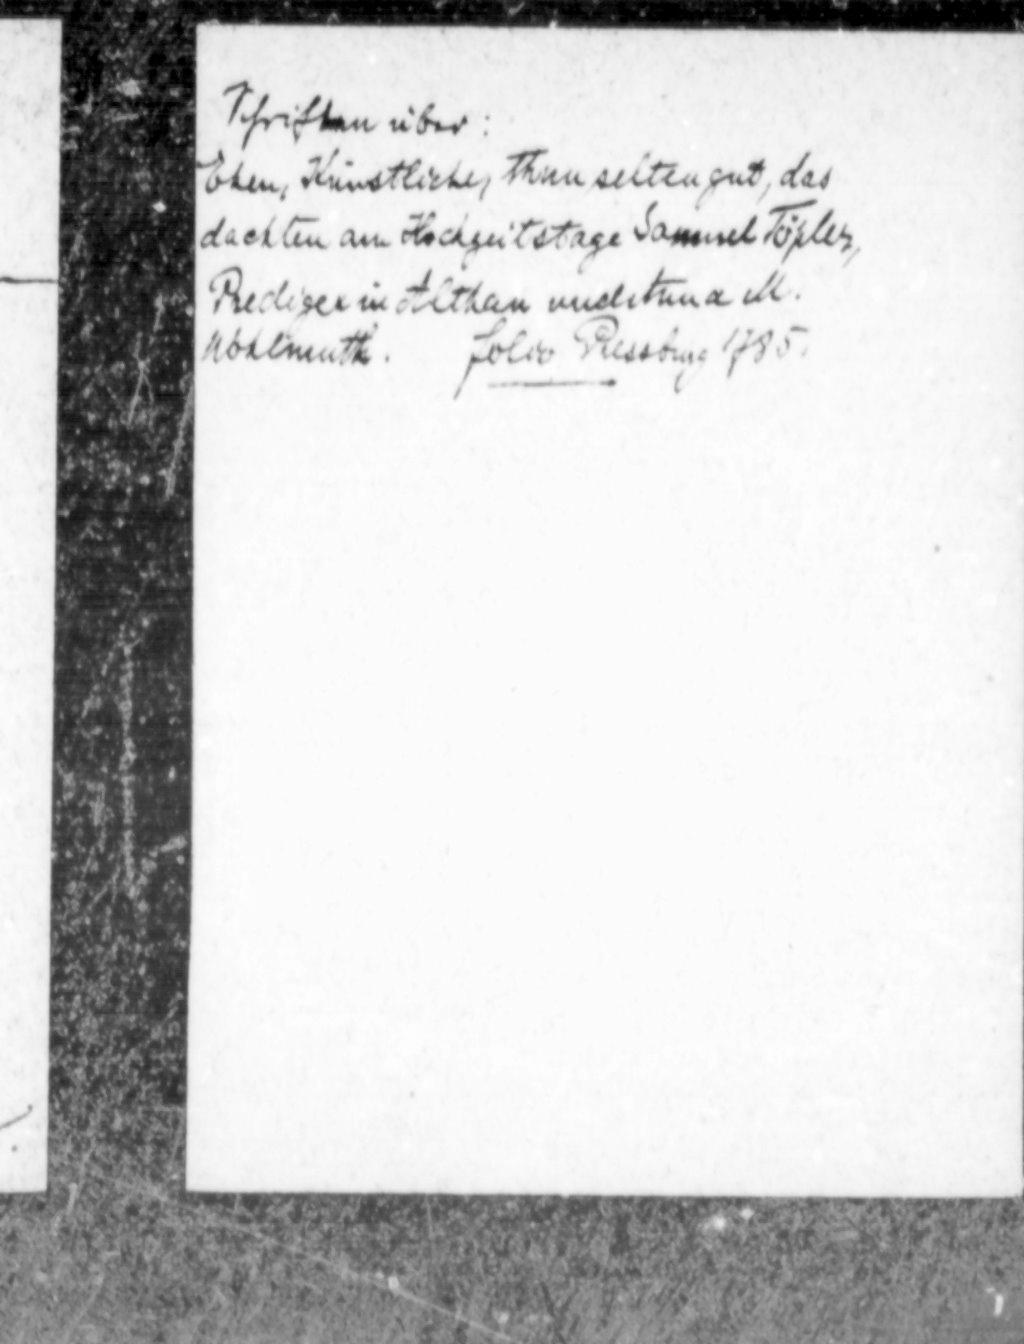 Schriften über:
Ehen, Künstliche, thun selten gut, das
dachten am Hochzeitstage Samuel Töpler,
Prediger in Althau und Anna M.
Wohlmuth. folio Pressburg 1785.